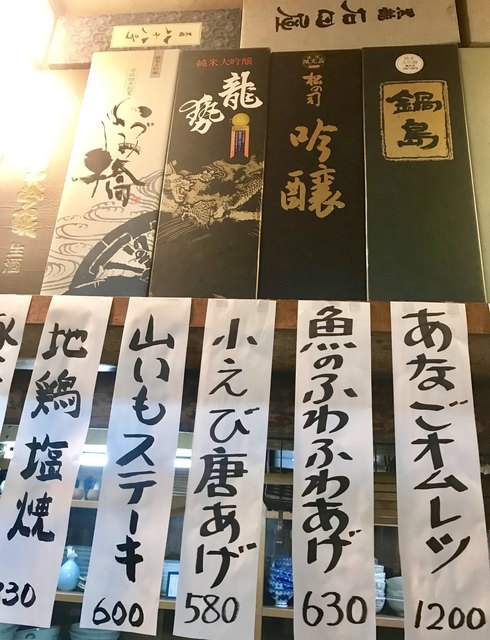 純米大吟醸
龍勢
松の司
吟醸
鍋島
いづみ橋
生酒
あなごオムレツ
1200
魚のふわふわあげ
630
小えび唐あげ
580
山いもステーキ
600
地鶏塩焼